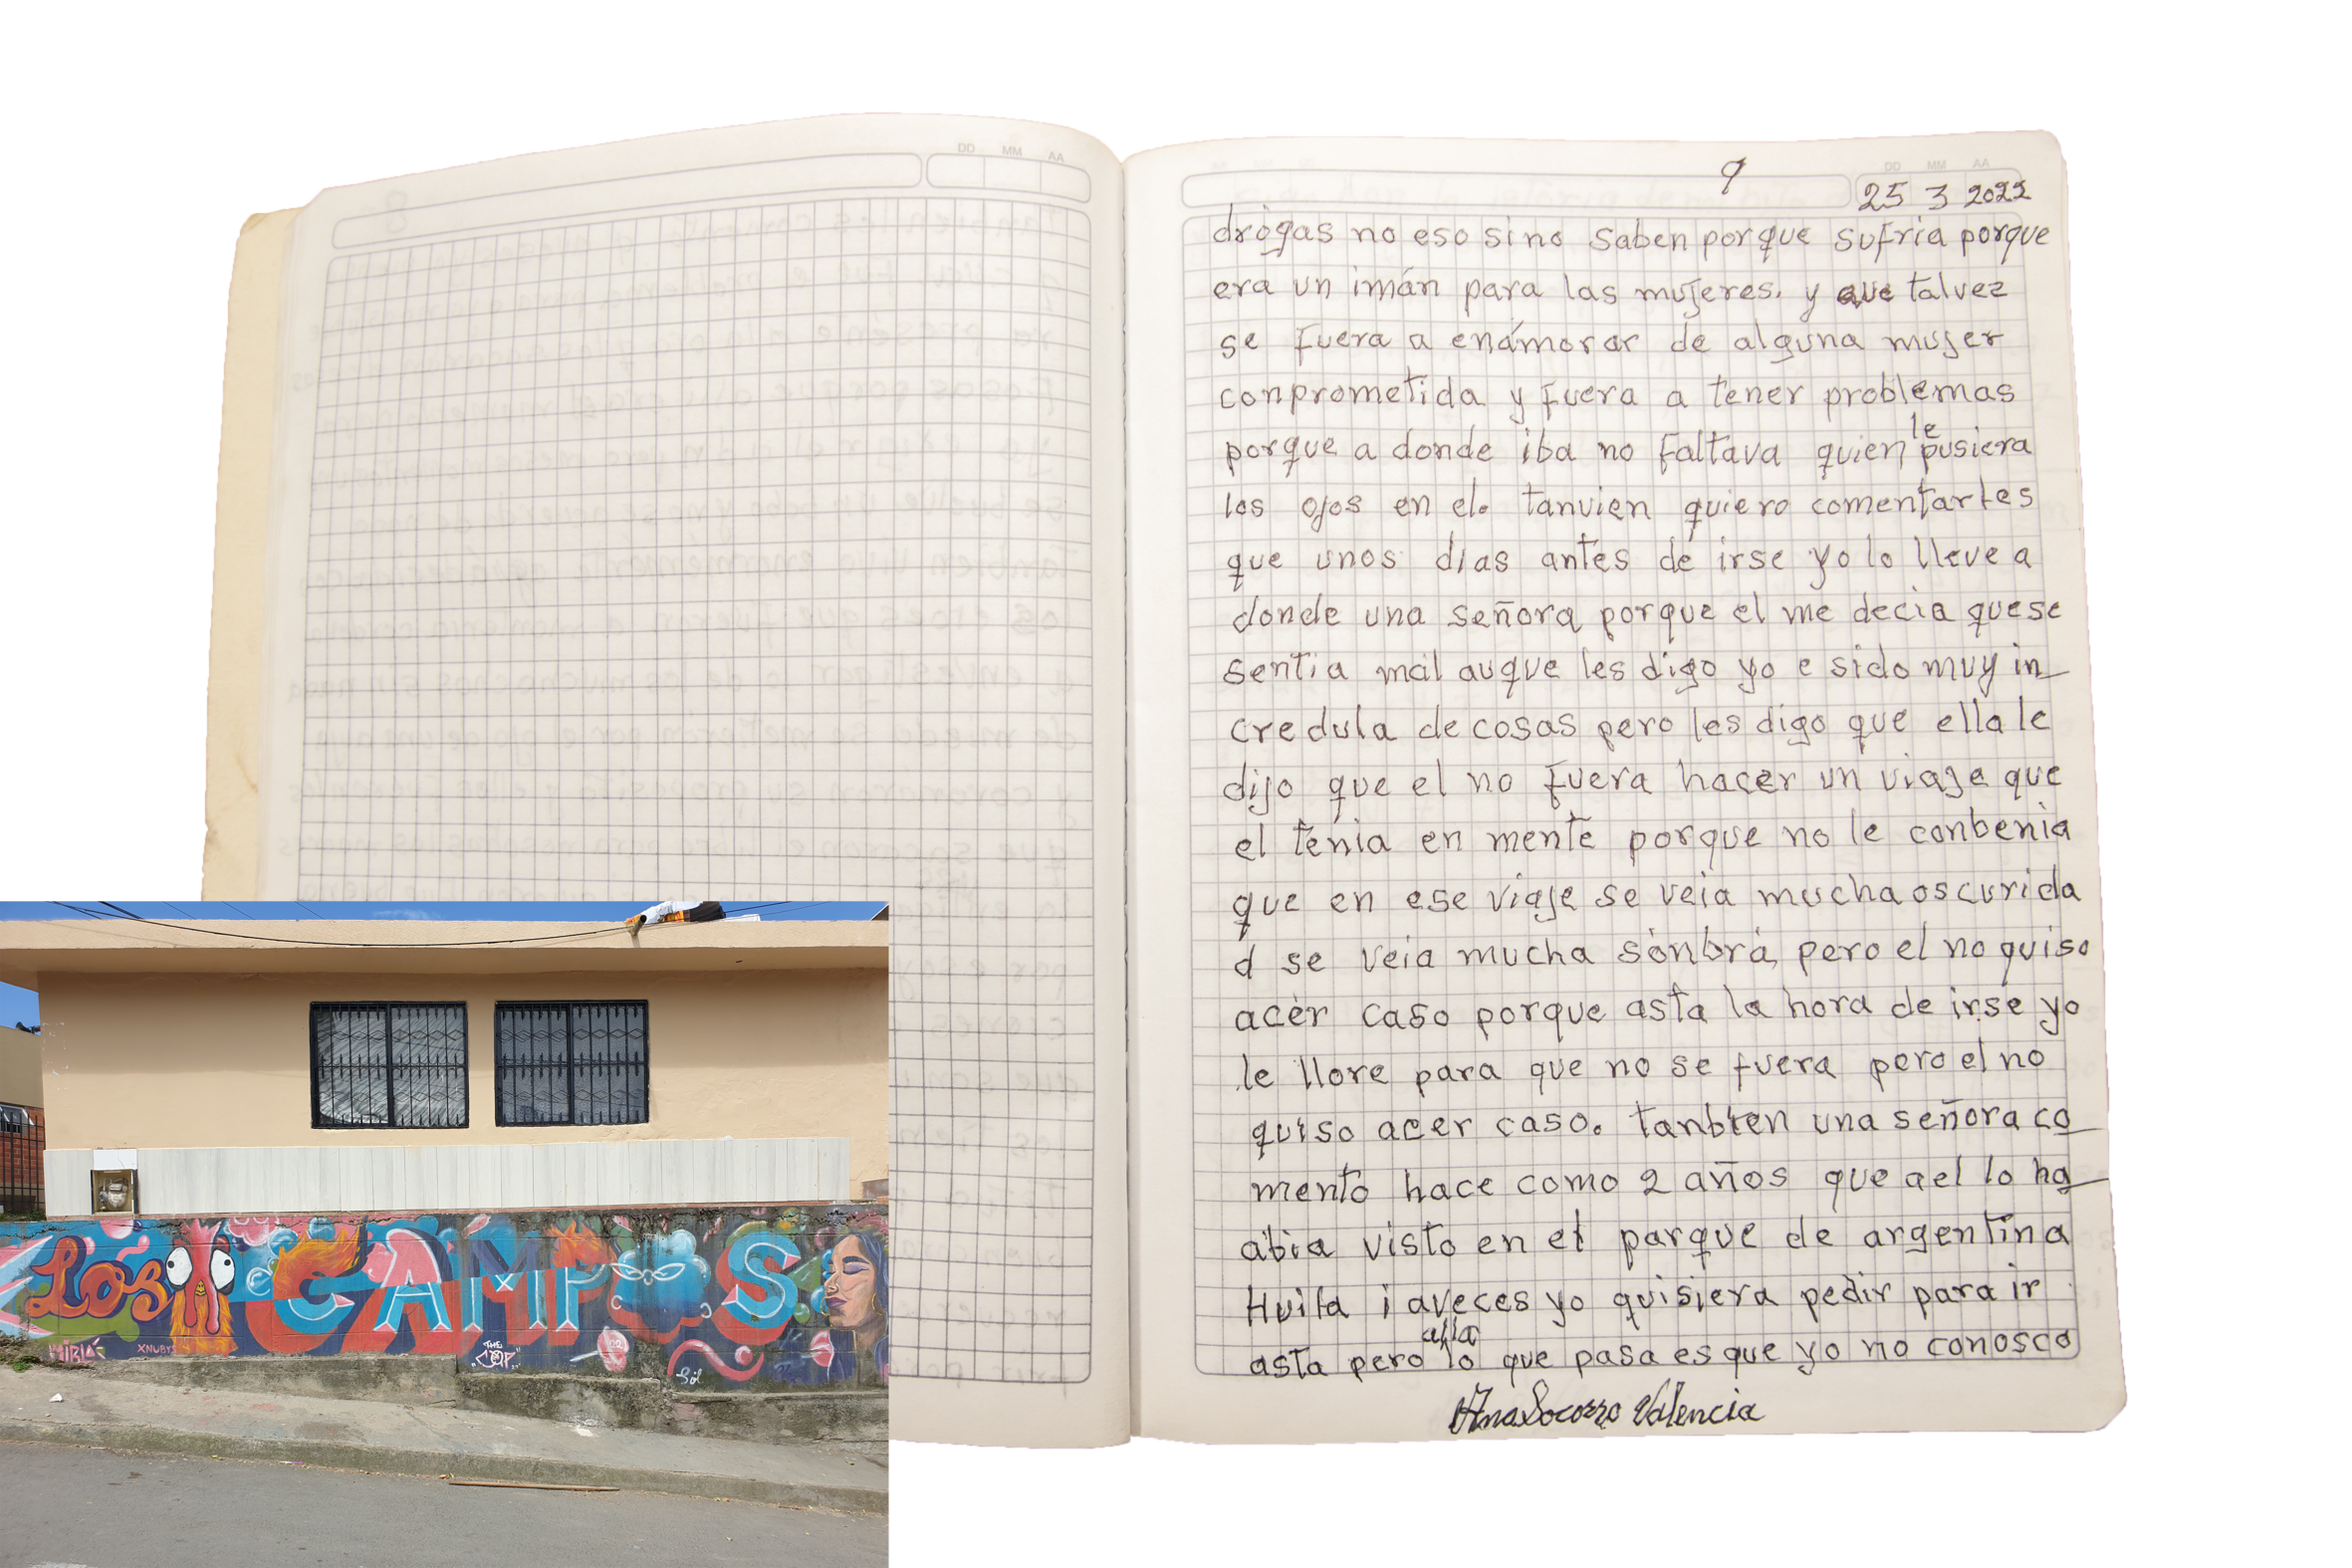 DD MM AA
9
DD MM AA
25 3 2022
drogas no eso sino saben porque sufria porque
era un imán para las mujeres. y que talvez
se fuera a enámorar de alguna mujer
conprometida y fuera a tener problemas
porque a donde iba no faltava quien le pusiera
los ojos en el. tanvien quiero comentarles
que unos dias antes de irse yo lo lleve a
donde una señora porque el me decia quese
sentia mal auque les digo yo e sido muy in_
credula de cosas pero les digo que ella le
dijo que el no fuera hacer un viaje que
el tenia en mente porque no le conbenia
que en ese viaje se veia mucha oscurida
d se veia mucha sonbra, pero el no quiso
acer caso porque asta la hora de irse yo
le llore para que no se fuera pero el no
quiso acer caso. tanbien una señora co_
mento hace como 2 años que ael lo ha_
abia visto en el parque de argentina
Huila i aveces yo quisiera pedir para ir
asta alla pero lo que pasa es que yo no conosco
Ana Socorro Valencia
Los CAMPOS
XNUBY
THE
COP
Sol